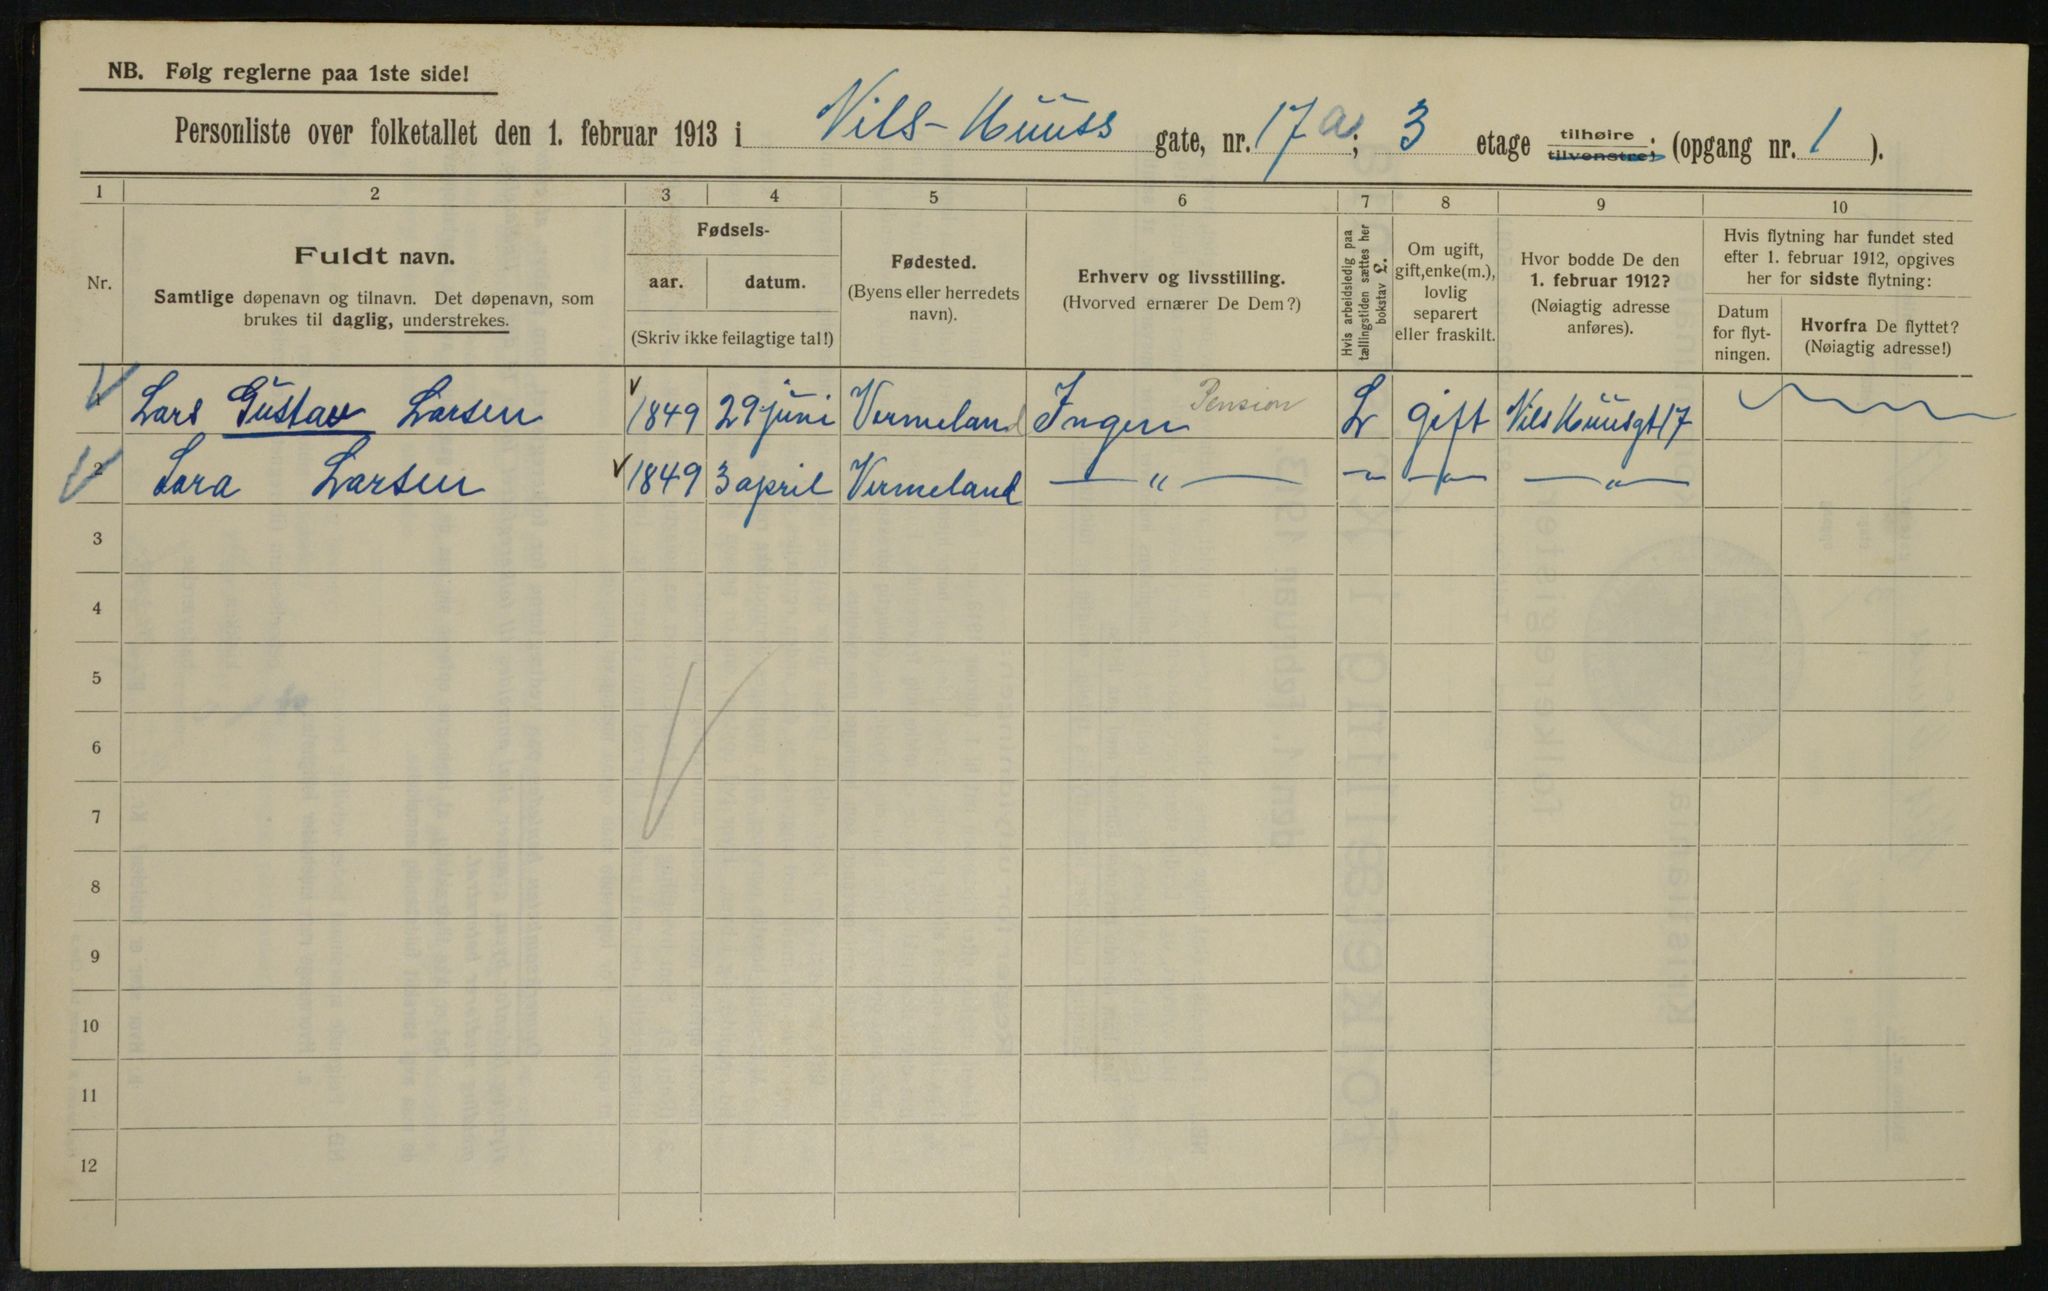 NB. Følg reglerne paa 1ste side!
Personliste over folketallet den 1. februar 1913 i Nils-Huuss gate, nr. 17a; 3 etage tilhøire tilvenstre; (opgang nr. 1).
1 2 3 4 5 6 7 8 9 10
Nr.
Fuldt navn.
Samtlige døpenavn og tilnavn. Det døpenavn, som
brukes til daglig, understrekes.
Fødsels-
aar. datum.
(Skriv ikke feilagtige tal!)
Fødested.
(Byens eller herredets
navn).
Erhverv og livsstilling.
(Hvorved ernærer De Dem?)
Hvis arbeidsledig paa
tællingstiden sættes her
bokstav £.
Om ugift,
gift, enke(m.),
lovlig
separert
eller fraskilt.
Hvor bodde De den
1. februar 1912?
(Nøiagtig adresse
anføres).
Hvis flytning har fundet sted
efter 1. februar 1912, opgives
her for sidste flytning:
Datum
for flyt-
ningen.
Hvorfra De flyttet?
(Nøiagtig adresse!)
1 Lars Gustav Larsen 1849 29 juni Vermeland Ingen Pension L gift Nils Huusgt 17
2 Lara Larsen 1849 3 april Vermeland — " — — " — — " — — " —
3
4
5
6
7
8
9
10
11
12